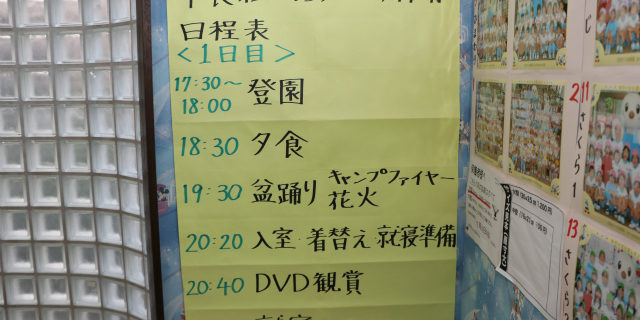 日程表
<1日目>
17:30～
18:00 登園
18:30 夕食
19:30 盆踊り キャンプファイヤー
花火
20:20 入室・着替え・就寝準備
20:40 DVD観賞
2 11
さくら1
13
さくら